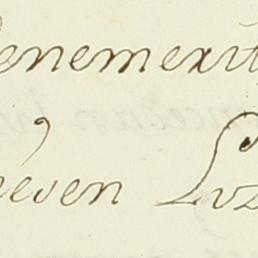 enemerit
even Luz